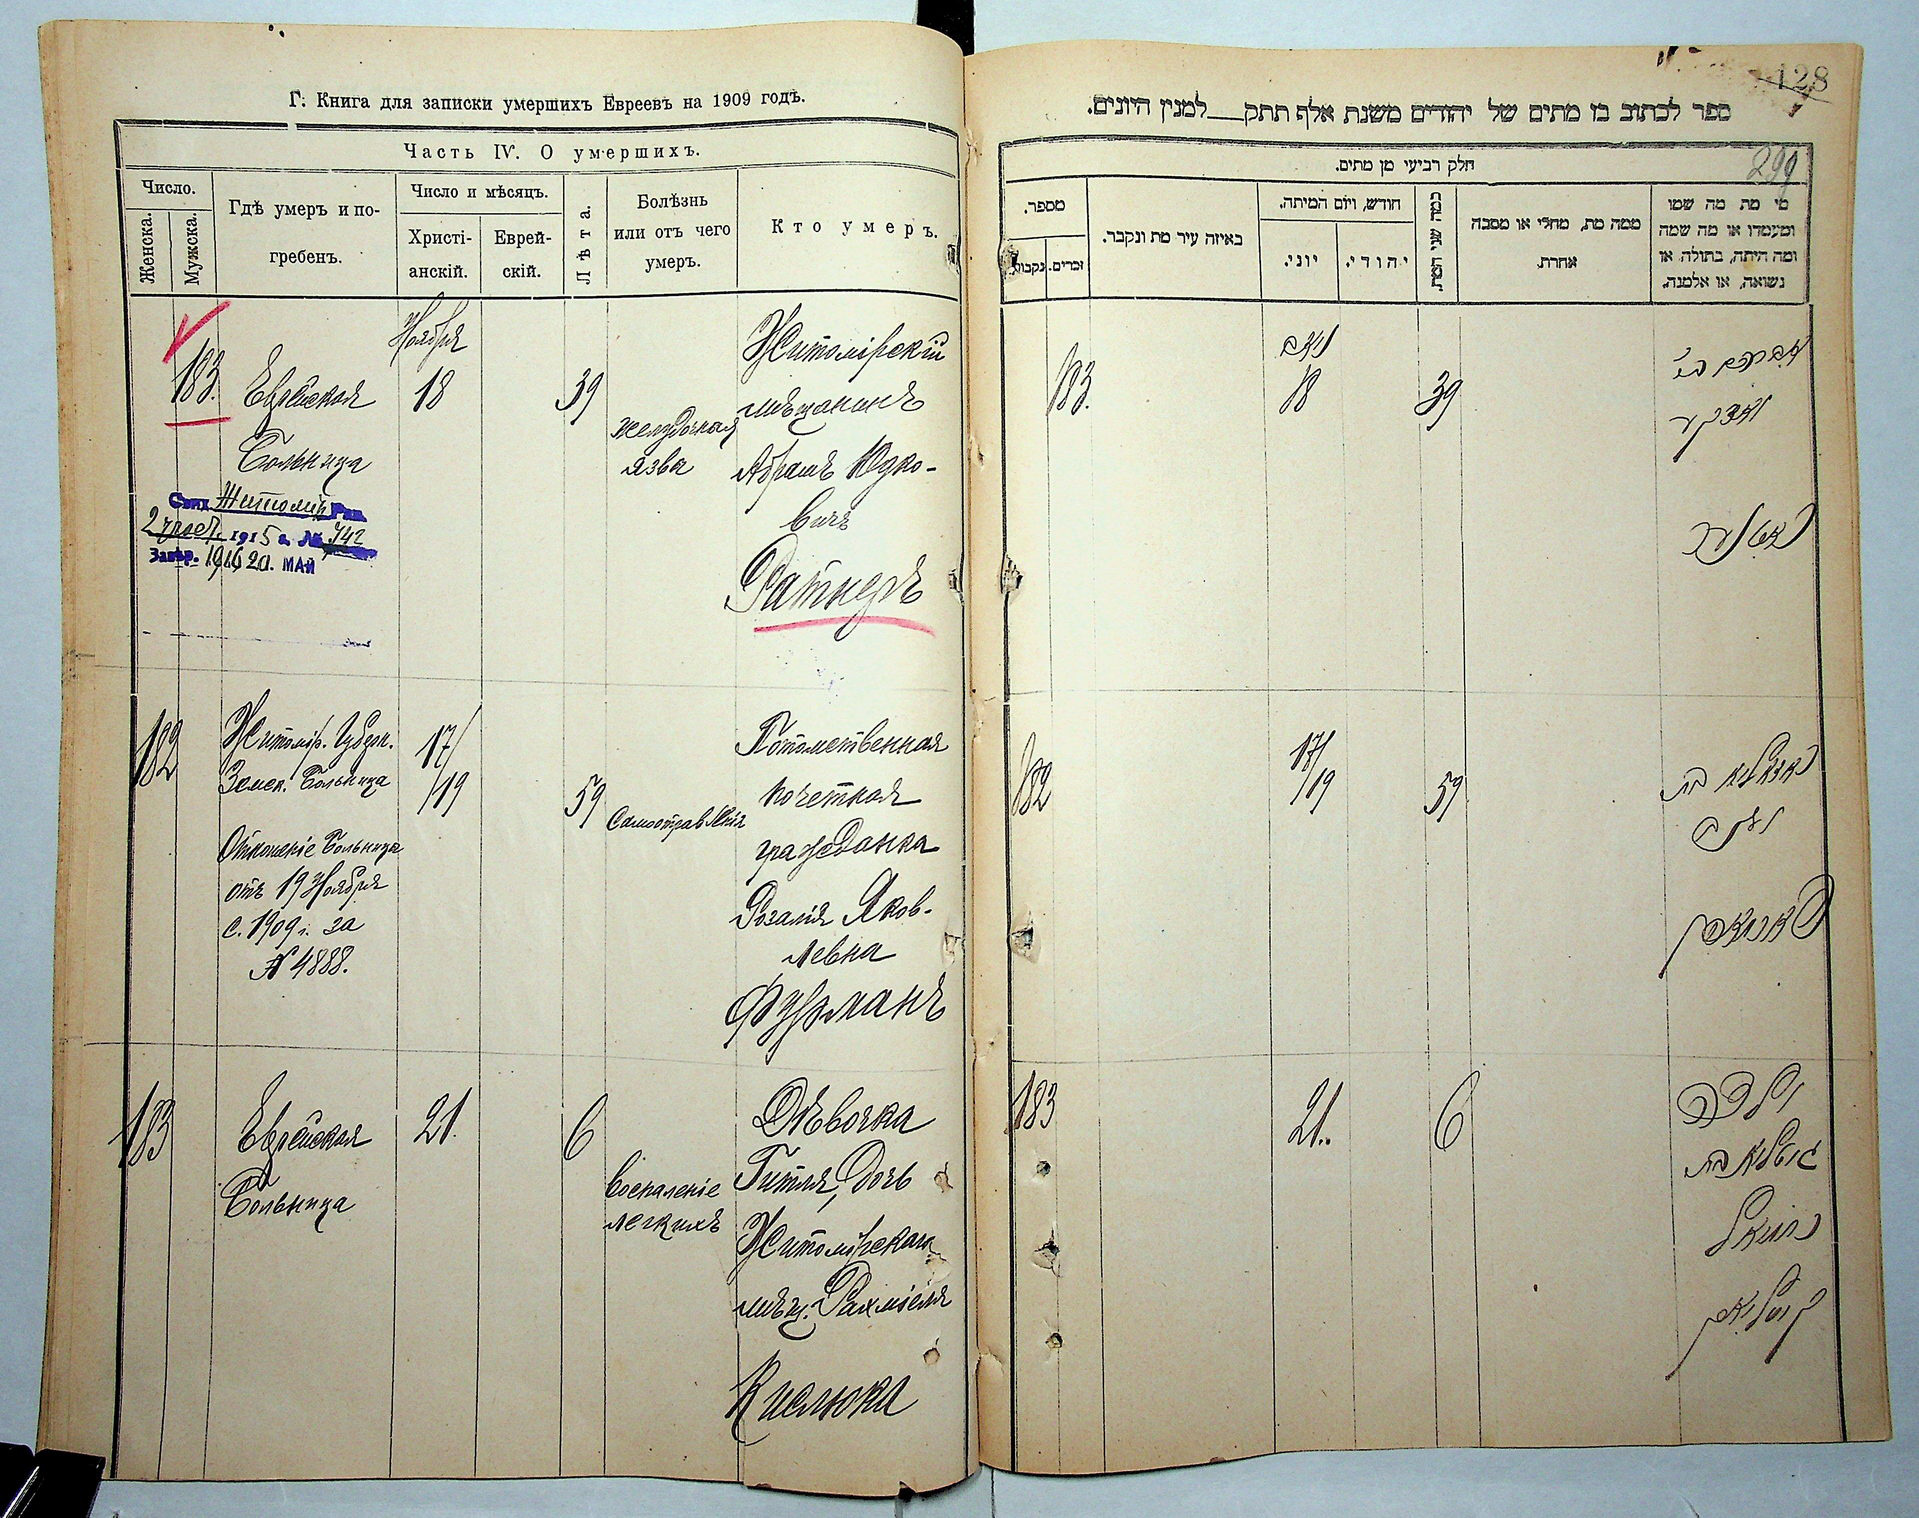 Г. Книга для записки умершихъ Евреевъ на 1909 годъ.
Часть IV. О умершихъ.
Число.
Женска.
Мужска.
Гдѣ умеръ и по-
гребенъ.
Число и мѣсяцъ.
Христі-
анскій.
Еврей-
скій.
Лѣта.
Болѣзнь
или отъ чего
умеръ.
Кто умеръ.
183.
Еврейская
Больница
Ноября
18
39
желудочная
язва
Житомірскій
мѣщанинъ
Абрамъ Юдко-
вичъ
Ратнеръ
Житомір
1915 г. № 742
Завѣр. 1916 20. МАЙ
182
Житомір. Губерн.
Земск. Больница
Отношеніе Больницы
отъ 19 Ноября
с. 1909 г. за
№ 4888.
17/
/19
59
Самоотравленія
Потомственная
почетная
гражданка
Розалія Яков-
левна
Фурманъ
183
Еврейская
Больница
21.
6
Воспаленіе
легкихъ
Дѣвочка
Гитля, дочь
Житомірскаго
мѣщ. Рахміеля
Кислюка
128
ספר לכתוב בו מתים של יהודים משנת אלף תתק___למנין היונים.
299
חלק רביעי מן מתים.
מספר.
נקבות.
זכרים.
באיזה עיר מת ונקבר.
חודש, ויום המיתה.
יוני.
יהודי.
כמה שני המת.
ממה מת, מחלי או מסבה
אחרת.
מי מת מה שמו
ומעמדו או מה שמה
ומה היתה, בתולה או
נשואה, או אלמנה.
183.
18
39
אברהם בר
ראטנער
182
17/
/19
59
ראזאליא בת
יעקב
פורמאן
183
21..
6
הילדה
גיטליא בת